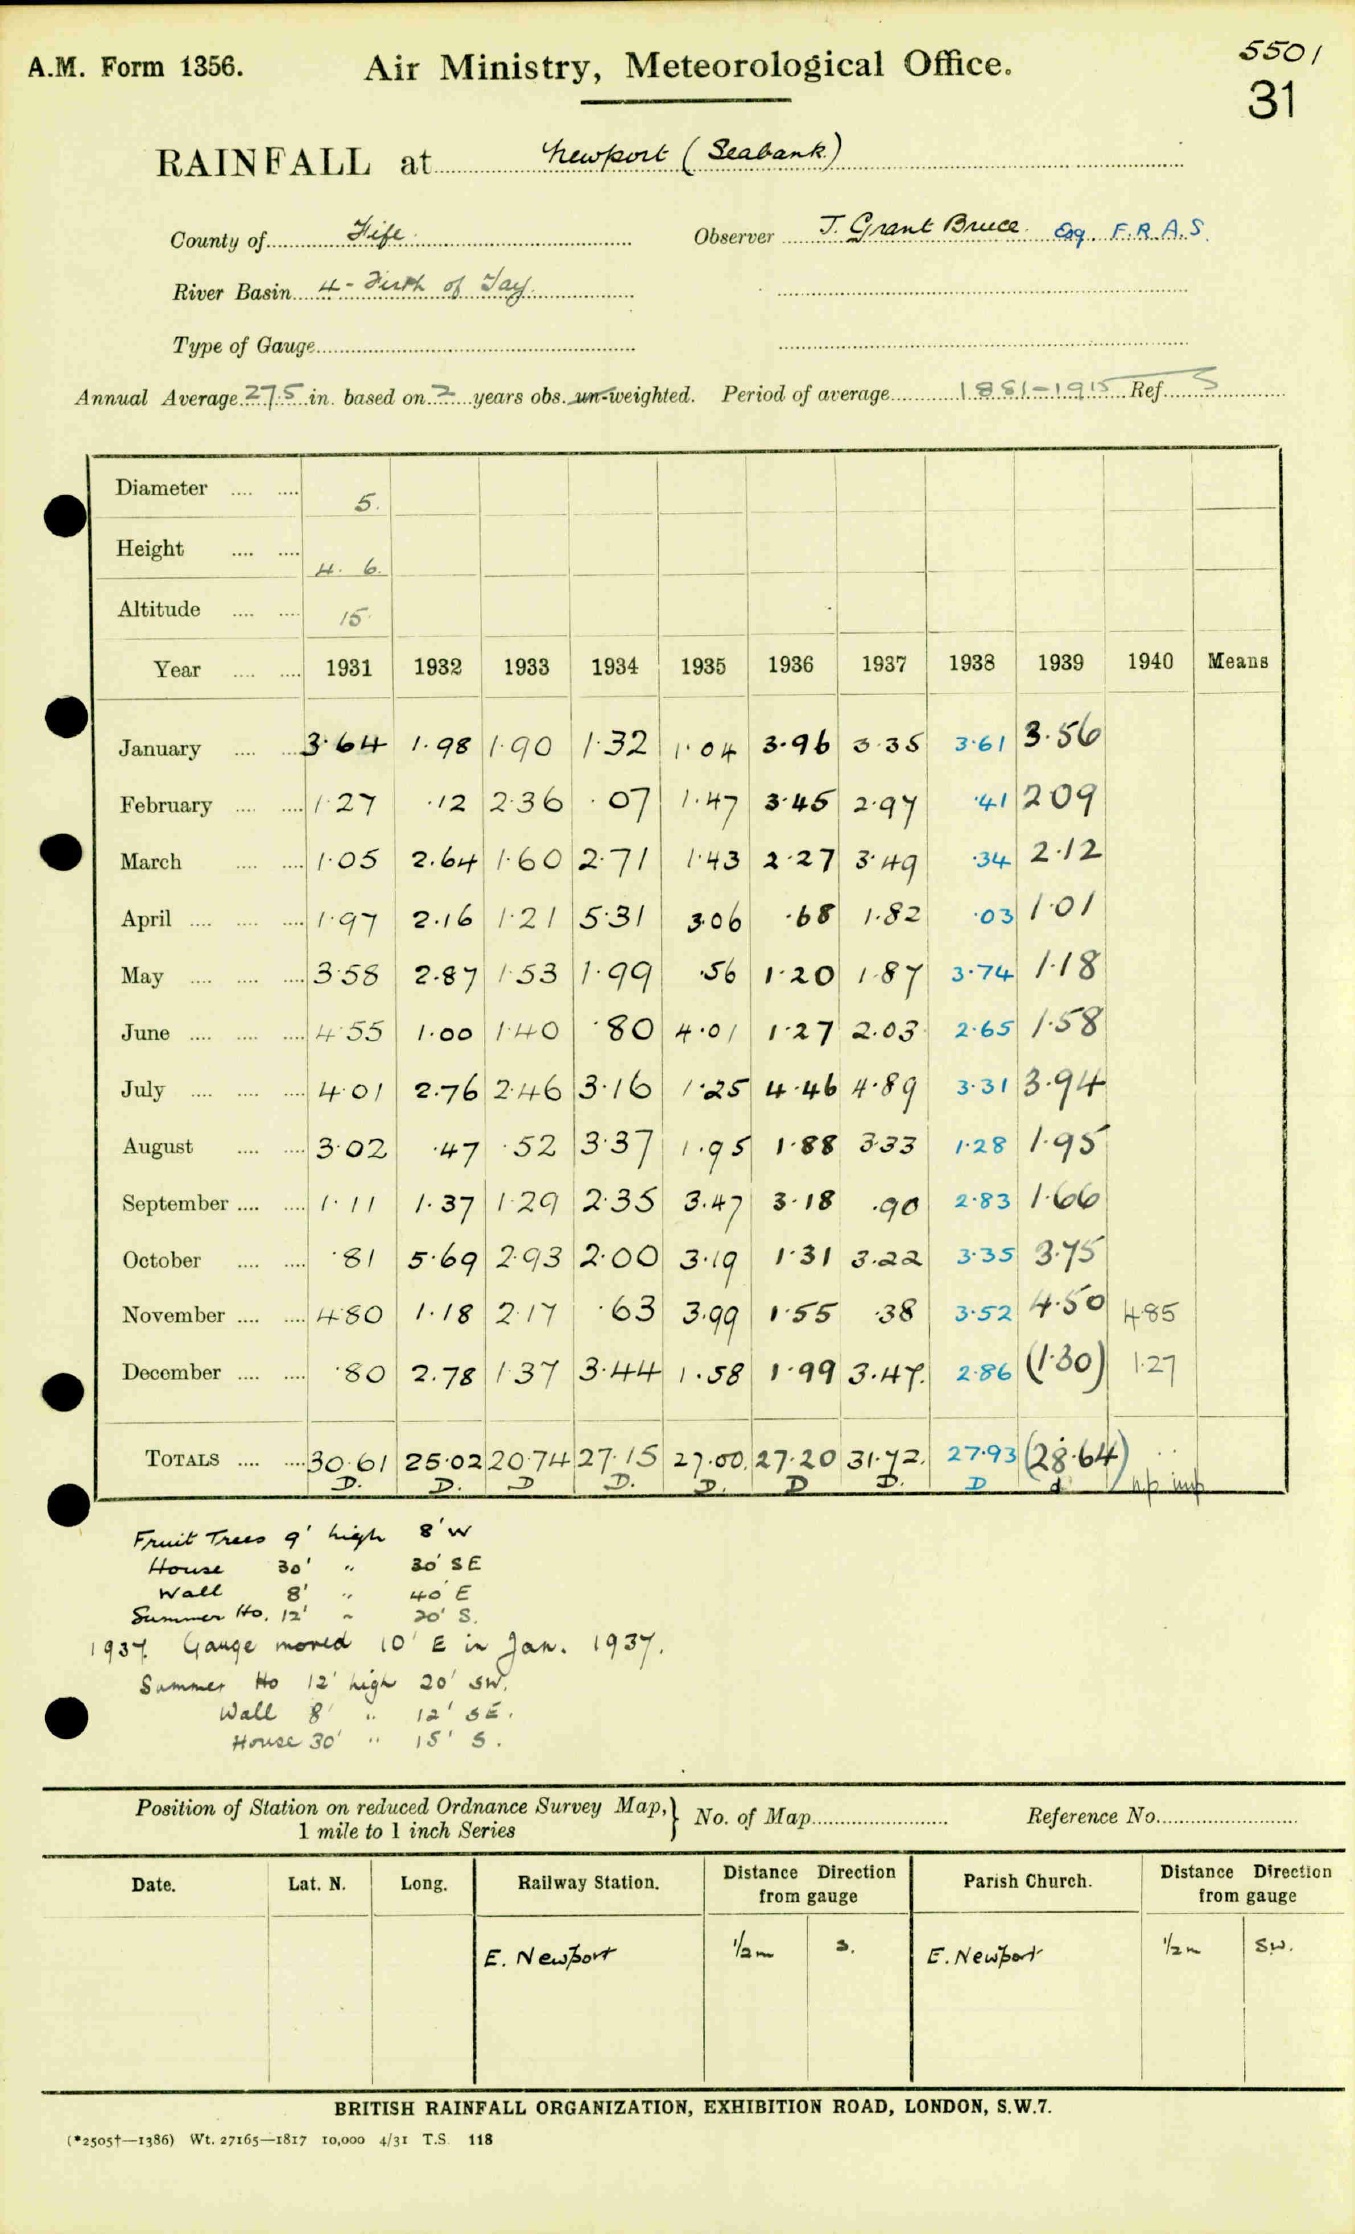 A.M. Form 1356. Air Ministry, Meteorological Office. 5501
31
RAINFALL at Newport (Seabank)
County of Fife Observer J. Grant Bruce. Esq. F.R.A.S.
River Basin 4 - Firth of Tay.
Type of Gauge
Annual Average 27.5 in. based on 2 years obs. un-weighted. Period of average 1881-1915 Ref. S
Diameter 5.
Height 4. 6.
Altitude 15
Year 1931 1932 1933 1934 1935 1936 1937 1938 1939 1940 Means
January 3.64 1.98 1.90 1.32 1.04 3.96 3.35 3.61 3.56
February 1.27 .12 2.36 .07 1.47 3.45 2.97 .41 2.09
March 1.05 2.64 1.60 2.71 1.43 2.27 3.49 .34 2.12
April 1.97 2.16 1.21 5.31 3.06 .68 1.82 .03 1.01
May 3.58 2.87 1.53 1.99 .56 1.20 1.87 3.74 1.18
June 4.55 1.00 1.40 .80 4.01 1.27 2.03 2.65 1.58
July 4.01 2.76 2.46 3.16 1.25 4.46 4.89 3.31 3.94
August 3.02 .47 .52 3.37 1.95 1.88 3.33 1.28 1.95
September 1.11 1.37 1.29 2.35 3.47 3.18 .90 2.83 1.66
October .81 5.69 2.93 2.00 3.19 1.31 3.22 3.35 3.75
November 4.80 1.18 2.17 .63 3.99 1.55 .38 3.52 4.50 4.85
December .80 2.78 1.37 3.44 1.58 1.99 3.47. 2.86 (1.30) 1.27
TOTALS 30.61 25.02 20.74 27.15 27.00. 27.20 31.72. 27.93 (28.64) ..
D. D. D D. D. D D. D d np imp
Fruit Trees 9' high 8' W
House 30' " 30' SE
Wall 8' " 40' E
Summer Ho. 12' " 20' S.
1937. Gauge moved 10' E in Jan. 1937.
Summer Ho 12' high 20' SW.
Wall 8' " 12' SE.
House 30' " 15' S.
Position of Station on reduced Ordnance Survey Map, 1 mile to 1 inch Series } No. of Map Reference No.
Date. Lat. N. Long. Railway Station. Distance Direction from gauge Parish Church. Distance Direction from gauge
E. Newport 1/2 m S. E. Newport 1/2 m SW.
BRITISH RAINFALL ORGANIZATION, EXHIBITION ROAD, LONDON, S.W.7.
(*2505†—1386) Wt. 27165—1817 10,000 4/31 T.S. 118